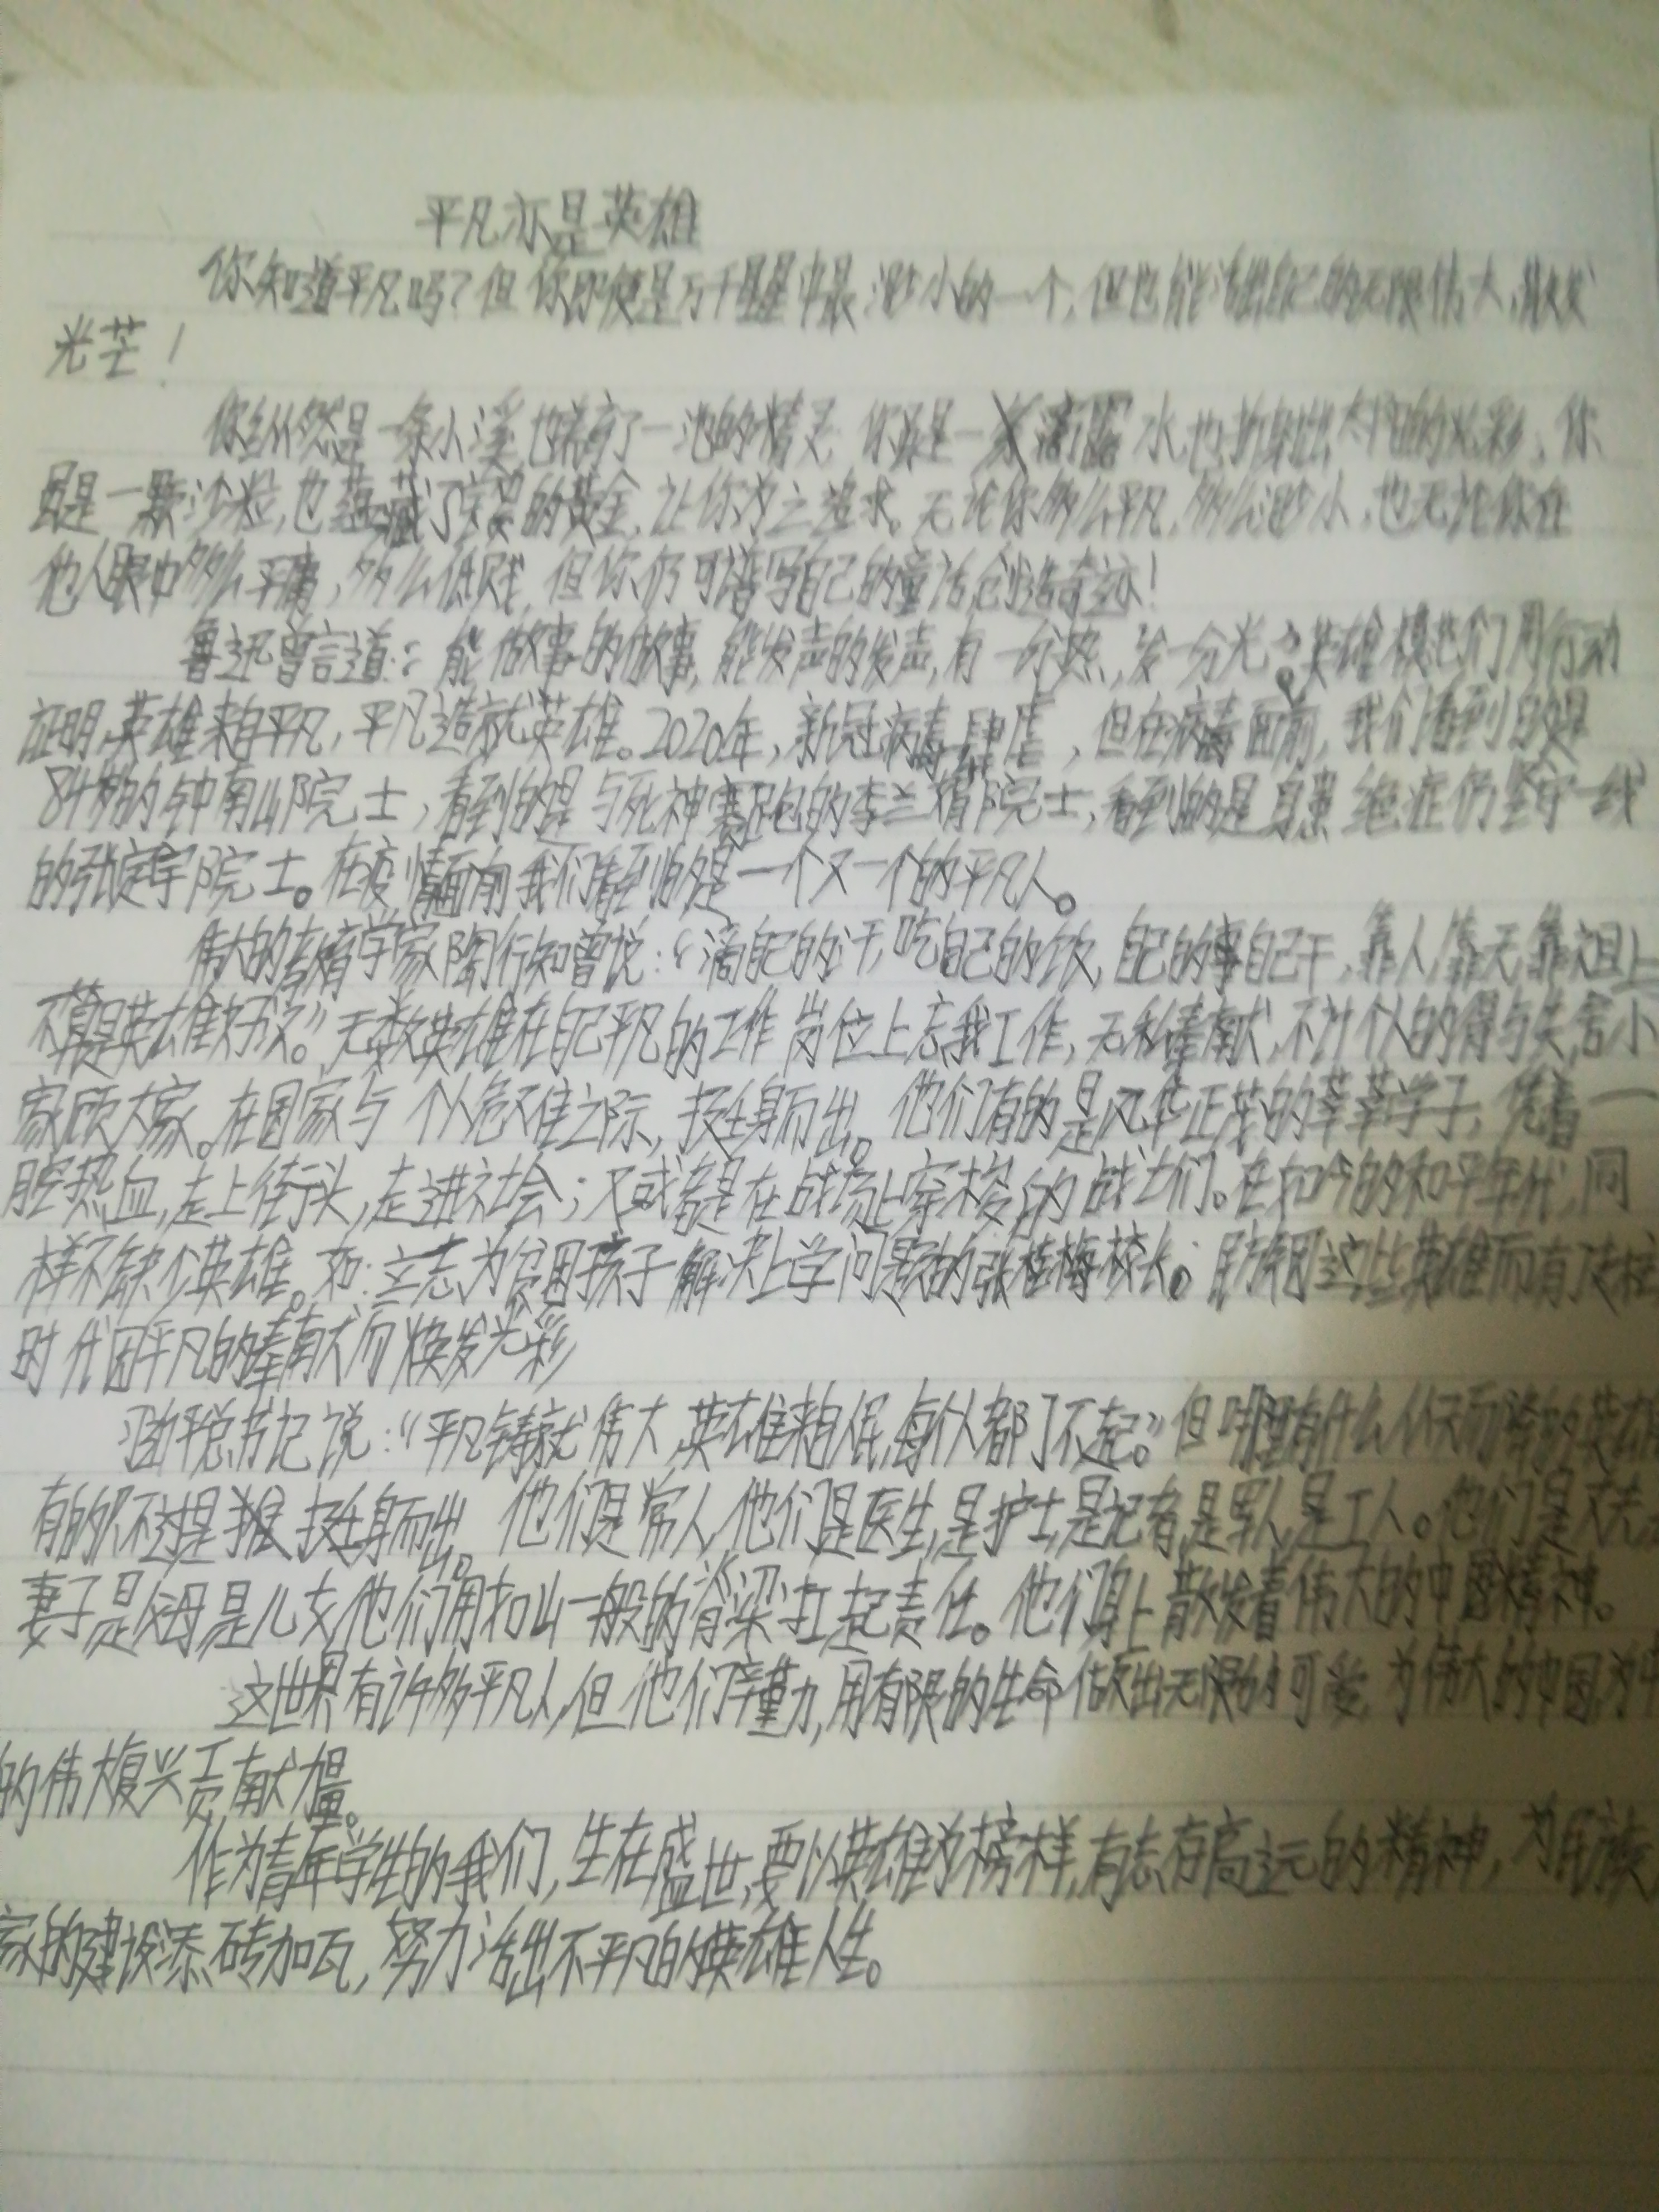 平凡亦是英雄
你知道平凡吗？但你即使是万千星星中最渺小的一个，但也能活出自己的无限伟大，散发
光芒！
你纵然是一条小溪，也 了一池的精灵 你 是一滴露水，也折射出太阳的光彩，你
是一颗沙粒，也蕴藏了 的黄金，让你为之追求。无论你多么平凡，多么渺小，也无论你在
他人眼中多么平庸，多么低贱，但你仍可谱写自己的童话，创造奇迹！
鲁迅曾言道：能做事的做事，能发声的发声，有一分热，发一分光。英雄模范们用行动
证明，英雄来自平凡，平凡造就英雄。2020年，新冠病毒肆虐，但在病毒面前，我们看到的是
84岁的钟南山院士，看到的是与死神赛跑的李兰娟院士，看到的是身患绝症仍坚守一线
的张定宇院士。在疫情面前我们看到的是一个又一个的平凡人。
伟大的教育学家陶行知曾说：“滴自己的汗，吃自己的饭，自己的事自己干，靠人，靠天，靠祖上
不算是英雄好汉。”无数英雄在自己平凡的工作岗位上忘我工作，无私奉献，不计个人的得与失，舍小
家顾大家。在国家与个人危难之际，挺身而出。他们有的是风华正茂的莘莘学子，凭着一
腔热血，走上街头，走进社会；又或者是在战场上穿梭的战士们。在如今的和平年代，同
样不缺少英雄。如：立志为贫困孩子解决上学问题的张桂梅校长。 因这些英雄而有了
时代因平凡的奉献而焕发光彩
习近平总书记说：“平凡铸就伟大，英雄来自人民，每个人都了不起。”但哪里有什么从天而降的英雄
有的只不过是 挺身而出。他们是常人，他们是医生，是护士，是记者，是军人，是工人。他们是丈夫是
妻子是父母是儿女，他们用如山一般的脊梁扛起责任。他们身上散发着伟大的中国精神。
这世界有许多平凡人，但他们辛勤，用有限的生命做出无限的可能，为伟大的中国，为
的伟大复兴贡献力量。
作为青年学生的我们，生在盛世，要以英雄为榜样，有志存高远的精神，为民族
家的建设添砖加瓦，努力活出不平凡的英雄人生。